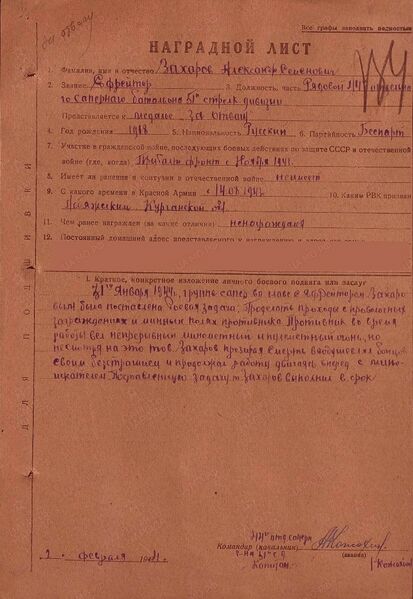 за отвагу
Все графы заполнять полностью
НАГРАДНОЙ ЛИСТ
1. Фамилия, имя и отчество Захаров Александр Семенович
2. Звание Ефрейтор 3. Должность, часть Рядовой
го саперного батальона 51й стрелк дивизии
Представляется к медаль „За Отвагу“
4. Год рождения 1918 5. Национальность Русский 6. Партийность Беспарт
7. Участие в гражданской войне, последующих боевых действиях по защите СССР и отечественной
войне (где, когда) Прибалт фронт с Ноября
8. Имеет ли ранения и контузии в отечественной войне неимеет
9. С какого времени в Красной Армии с 10. Каким РВК призван
Курганской обл
11. Чем ранее награжден (за какие отличия) ненаграждался
12. Постоянный домашний адрес представляемого к награждению и адрес его семьи
ДЛЯ ПОДШИВКИ
I. Краткое, конкретное изложение личного боевого подвига или заслуг
Января 1944г. группе сапер во главе с Ефрейтором Захаро
вым была поставлена боевая задача, Проделать проходы в проволочных
заграждениях и минных полях противника. Противник во время
работы вел непрерывный минометный и пулеметный огонь, но
несмотря на это тов. Захаров презирая смерть воодушевлял бойцов
своим бесстрашием и продолжал работу двигаясь вперед с мино-
искателем. Поставленную задачу т. Захаров выполнил в срок
отд сапера
Командир (начальник)
(звание)
Капитан
2 февраля 194